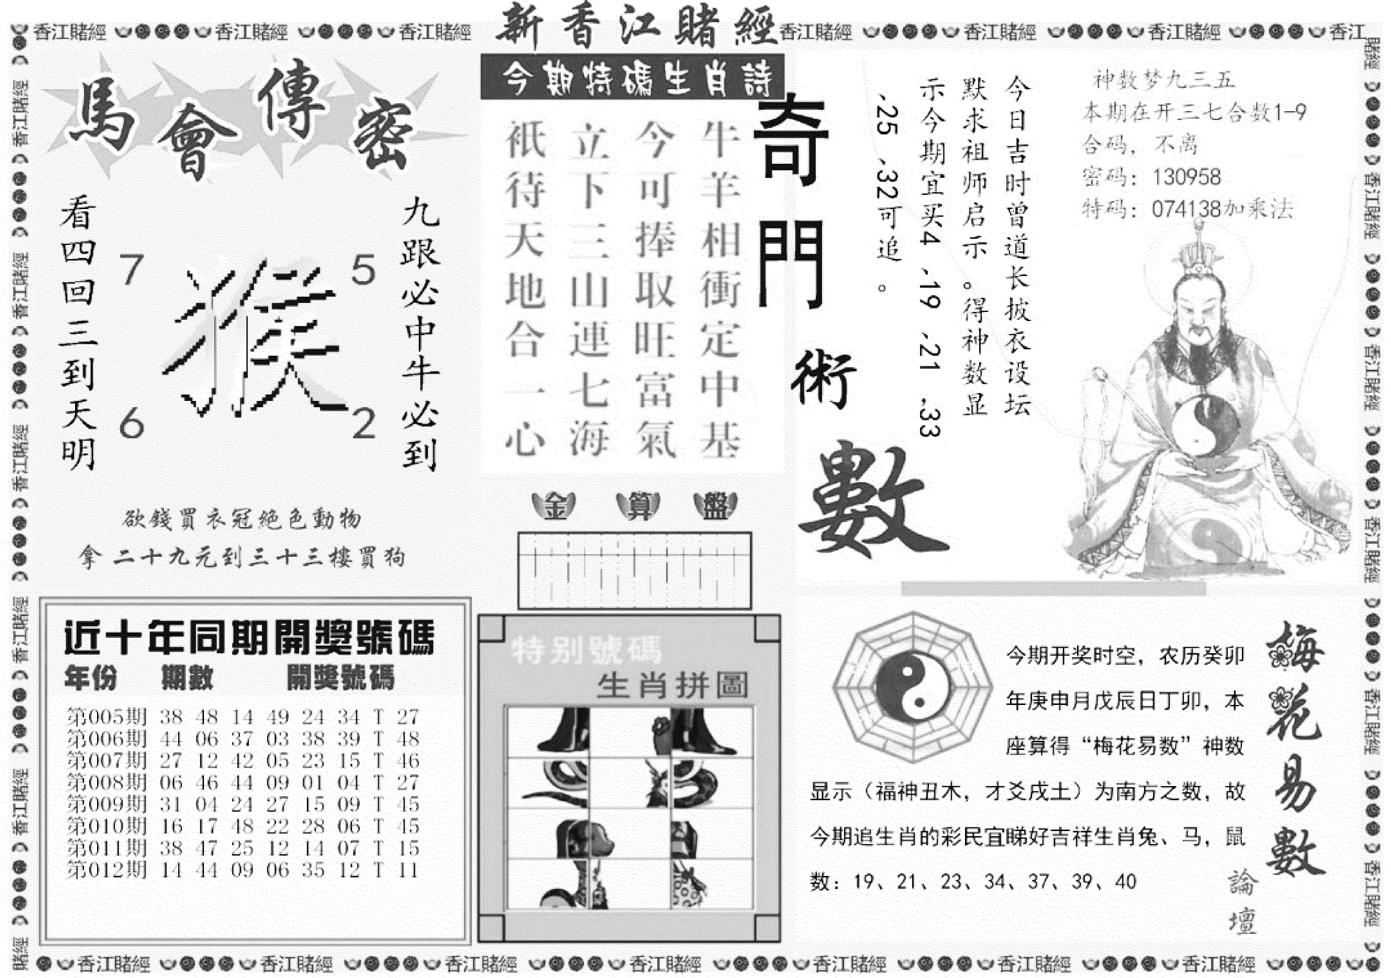 新香江賭經
香江賭經
馬會傳密
九跟必中牛必到
看四回三到天明
7
5
猴
6
2
欲錢買衣冠絕色動物
拿二十九元到三十三樓買狗
今期特碼生肖詩
牛羊相衝定中基
今可捧取旺富氣
立下三山連七海
祇待天地合一心
金算盤
奇門術數
今日吉时曾道长披衣设坛
默求祖师启示。得神数显
示今期宜买4、19、21、33
、25、32可追。
神数梦九三五
本期在开三七合数1-9
合码，不离
密码：130958
特码：074138加乘法
近十年同期開獎號碼
年份 期數 開獎號碼
第005期 38 48 14 49 24 34 T 27
第006期 44 06 37 03 38 39 T 48
第007期 27 12 42 05 23 15 T 46
第008期 06 46 44 09 01 04 T 27
第009期 31 04 24 27 15 09 T 45
第010期 16 17 48 22 28 06 T 45
第011期 38 47 25 12 14 07 T 15
第012期 14 44 09 06 35 12 T 11
特别號碼
生肖拼圖
梅花易數
論壇
今期开奖时空，农历癸卯
年庚申月戊辰日丁卯，本
座算得“梅花易数”神数
显示（福神丑木，才爻戌土）为南方之数，故
今期追生肖的彩民宜睇好吉祥生肖兔、马，鼠
数：19、21、23、34、37、39、40